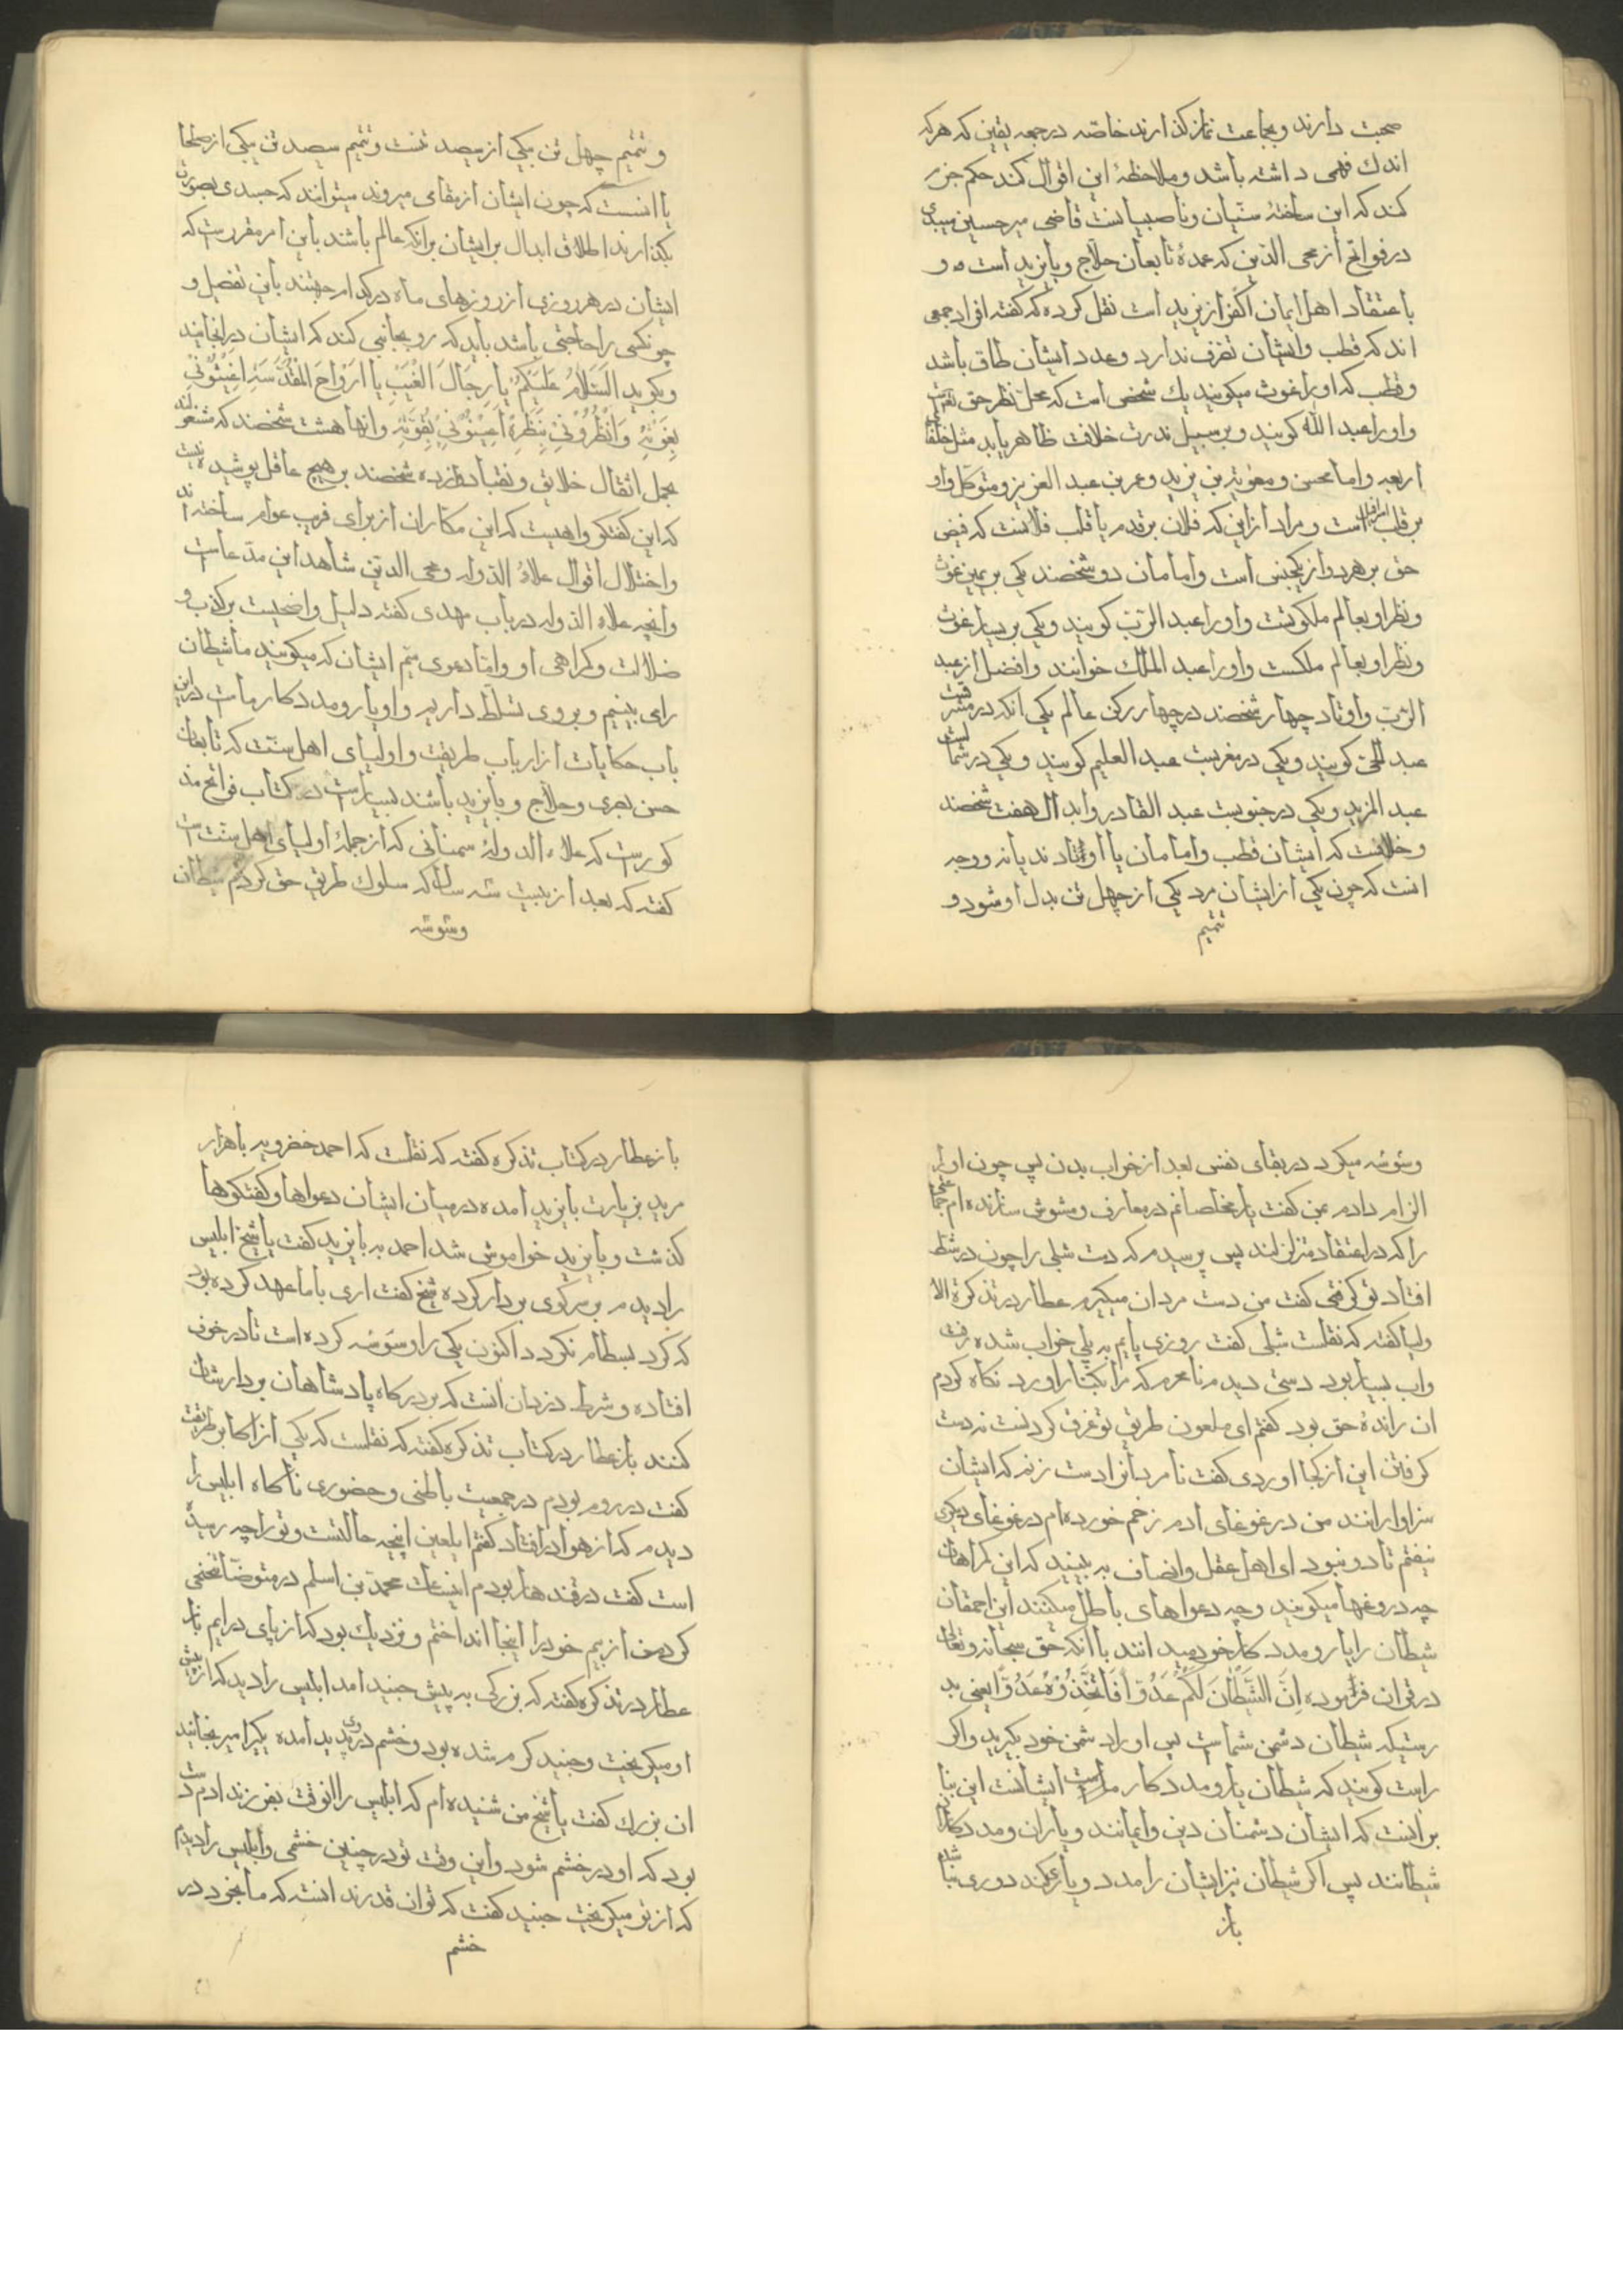 صحبت دارند و بجماعت نماز کذارند خاصّه در جمعه یقین که هر که
اندك فهمی داشته باشد و ملاحظهٔ این اقوال کند حکم جزم
کند که این ساختهٔ سنّیان و ناصبیانست قاضی میر حسین میبدی
در فواتح از محی الدّین که عمدهٔ تابعان حلّاج و بایزید است و
باعتقاد اهل ایمان اکفر از یزید است نقل کرده که کفته افراد جمعی
اند که قطب در ایشان تصرّف ندارد و عدد ایشان طاق باشد
و قطب که او را غوث میکویند یك شخص است که محل نظر حق تعالیست
و او را عبد اللّه کویند و بر سبیل ندرت خلافت ظاهر یابد مثل خلفاء
اربعه و امام حسن و معویة بن یزید و عمر بن عبد العزیز و متوکل و او
بر قلب اسرافیل است و مراد از این که فلان بر قدم یا قلب فلانست که فیض
حق بر هر دو از یکجنس است و امامان دو شخصند یکی بر یمین غوث
و نظر او بعالم ملکوتست و او را عبد الرّبّ کویند و یکی بر یسار غوث
و نظر او بعالم ملکست و او را عبد الملك خوانند و افضل از عبد
الرّبّ و اوتاد چهار شخصند در چهار رکن عالم یکی آنکه در مشرقست
عبد الحیّ کویند و یکی در مغربست عبد العلیم کویند و یکی در شمالست
عبد المرید و یکی در جنوبست عبد القادر و ابدال هفت شخصند
و خلافست که ایشان قطب و امامان یا اوتادند یا نه و وجه
انست که چون یکی از ایشان مرد یکی از چهل تن بدل او شود و
تتمیم
و تتمیم چهل تن بیکی از سیصد تنست و تتمیم سیصد تن بیکی از صلحا
یا انست که چون ایشان از مقامی میروند میتوانند که جسدی بصورت
بکذارند اطلاق ابدال بر ایشان برانکه عالم باشند باین امر مقرر است که
ایشان در هر روزی از روزهای ماه در کدام جهتند باین تفصیل و
چونکسی را حاجتی باشد باید که رو بجانبی کند که ایشان در انجانبند
و بکوید السَّلَامُ عَلَیْکُمْ یَا رِجَالَ الْغَیْبِ یَا اَرْوَاحَ الْمُقَدَّسَةِ اَغِیْثُوْنِیْ
بِغَوْثَةٍ وَ انْظُرُوْنِیْ بِنَظْرَةٍ اَعِیْنُوْنِیْ بِقُوَّةٍ و انها هشت شخصند که مشغولند
بحمل اثقال خلایق و نقباء دوازده شخصند بر هیچ عاقل پوشیده نیست
که این کفتکو واهیست که این مکاران از برای فریب عوام ساخته اند
و اختلال اقوال علاءُ الدّوله و محی الدّین شاهد این مدّعاست
و انچه علاء الدّوله در باب مهدی کفته دلیل واضحیست بر کذب و
ضلالت و کمراهی او و امّا دعوی سیّم ایشان که میکویند ما شیطان
را می بینیم و بر وی تسلّط داریم و او یار و مددکار ماست در این
باب حکایات از ارباب طریقت و اولیای اهل سنّت که تابعان
حسن بصری و حلّاج و بایزید باشند بسیار است در کتاب فواتح مذ
کور است که علاء الدولهٔ سمنانی که از جملهٔ اولیای اهل سنّت است
کفته که بعد از بیست سه سال که سلوك طریق حق کردم شیطان
وسوسه
وسوسه میکرد در بقای نفس بعد از خواب بدن پس چون او را
الزام دادم بمن کفت یار مخلصانم در معارف و مشوش سازنده ام جماعتی
را که در اعتقاد متزلزلند پس پرسیدم که دست شبلی را چون در شط
افتاد تو کرفتی کفت من دست مردان میکیرم عطار در تذکرة الا
ولیا کفته که نقلست شبلی کفت روزی پایم به پلی خراب شده فرو رفت
و اب بسیار بود دستی دیدم نامحرم که مرا بکنار اورد نکاه کردم
ان راندهٔ حق بود کفتم ای ملعون طریق تو غرق کردنست نه دست
کرفتن این از کجا اوردی کفت نامردانرا دست زنم که ایشان
سزاوار انند من در غوغای ادم زخم خورده ام در غوغای دیکری
نیفتم تا دو نبود ای اهل عقل و انصاف به بینید که این کمراهان
چه دروغها میکویند و چه دعواهای باطل میکنند این احمقان
شیطان را یار و مددکار خود میدانند با انکه حق سبحانه و تعالی
در قران فرموده اِنَّ الشَّیْطَانَ لَکُمْ عَدُوٌّ فَاتَّخِذُوْهُ عَدُوًّا یعنی بد
رستیکه شیطان دشمن شماست پس او را دشمن خود بکیرید و اکر
راست کویند که شیطان یار و مددکار ایشانست این بنا
بر انست که ایشان دشمنان دین و ایمانند و یاران و مددکاران
شیطانند پس اکر شیطان نیز ایشان را مدد و یاری کند دوری نباشد
باز
باز عطار در کتاب تذکره کفته که نقلست که احمد خضرویه با هزار
مرید بزیارت بایزید امده در میان ایشان دعواها و کفتکوها
کذشت و بایزید خواموش شد احمد به بایزید کفت یا شیخ ابلیس
را دیدم بر سر کوی بر دار کرده شیخ کفت اری با ما عهد کرده بود
که کرد بسطام نکردد اکنون یکی را وسوسه کرده است تا در خون
افتاده و شرط دزدان انست که بر درکاه پادشاهان بر دارشان
کنند باز عطار در کتاب تذکره کفته که نقلست که یکی از اکابر طریقت
کفت در روم بودم در جمعیت باطنی و حضوری ناکاه ابلیس را
دیدم که از هوا در افتاد کفتم ایلعین اینچه حالتست و تو را چه رسیده
است کفت در قندهار بودم اینساعت محمّد بن اسلم در متوضّا تنحنحی
کرد من از بیم خود را اینجا انداختم و نزدیك بود که از پای در ایم باز
عطار در تذکره کفته که بزرکی به پیش جنید امد ابلیس را دید که از پیش
او میکریخت و جنید کرم شده بود و خشم در وی پدید امده یکیرا میرنجانید
ان بزرك کفت یا شیخ من شنیده ام که ابلیس را انوقت بفرزند ادم دست
بود که او در خشم شود و این وقت تو در چنین خشمی و ابلیس را دیدم
که از تو میکریخت جنید کفت که تو ان قدر ندانسته که ما بخود در
خشم